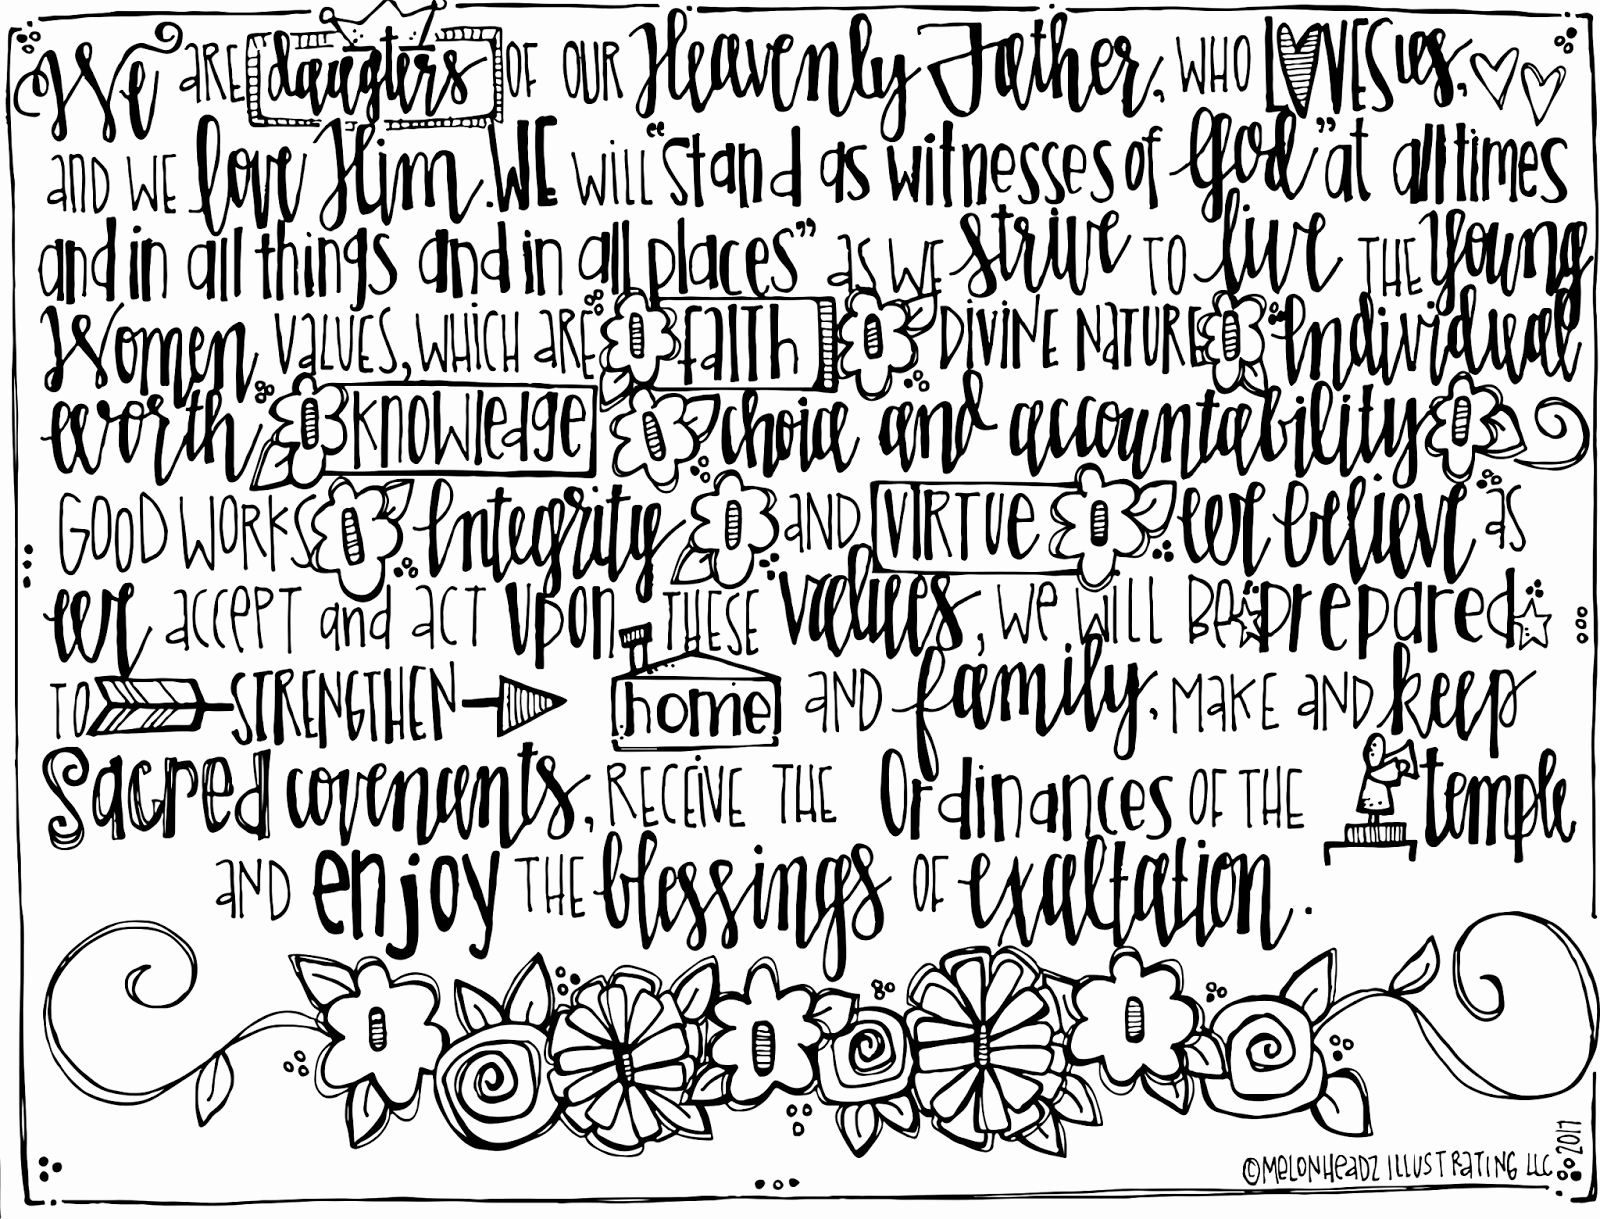 We ARE daugters OF OUR Heavenly Father, WHO LOVES us,
AND WE love Him. WE will "stand as witnesses of God" at all times
and in all things and in all places" as WE strive TO live THE Young
Women VALUES, WHICH ARE FAITH DIVINE NATURE Individual
worth KNOWLEDGE choice and accountability
GOOD WORKS Integrity AND VIRTUE we believe as
we ACCEPT and ACT upon THESE values, we WILL BE prepared
TO STRENGTHEN home AND family, MAKE AND keep
Sacred covenants, RECEIVE THE Ordinances OF THE temple
AND enjoy THE blessings OF exaltation.
©MELONHEADZ ILLUSTRATING LLC 2017